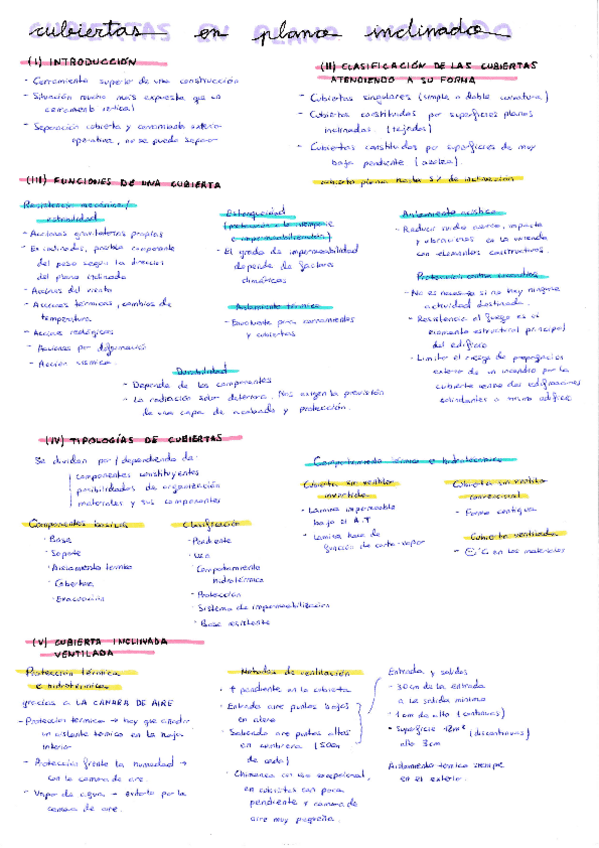 cubiertas en plano inclinado
(I) INTRODUCCIÓN
- Cerramiento superior de una construcción
- Situación mucho más expuesta que un
cerramiento vertical
- Separación cubierta y cerramiento exterior
operativa, no se puede separar
(II) CLASIFICACIÓN DE LAS CUBIERTAS
ATENDIENDO A SU FORMA
- Cubiertas singulares (simple o doble curvatura)
- Cubiertas constituidas por superficies planas
inclinadas. (tejados)
- Cubiertas constituidas por superficies de muy
baja pendiente (azotea).
cubierta plana hasta 5% de inclinación
(III) FUNCIONES DE UNA CUBIERTA
Resistencia mecánica/
estabilidad
- Acciones gravitatorias propias
- En inclinados, posible componente
del peso según la dirección
del plano inclinado
- Acciones del viento
- Acciones térmicas, cambios de
temperatura
- Acciones reológicas
- Acciones por deformación
- Acción sísmica
Estanqueidad
(protección a la intemperie
e impermeabilización)
- El grado de impermeabilidad
depende de factores
climáticos
Aislamiento térmico
- Envolvente para cerramientos
y cubiertas
Aislamiento acústico
- Reducir ruido aéreo, impacto
y vibraciones en la vivienda
con elementos constructivos.
Protección contra incendios
- No es necesario si no hay ninguna
actividad destinada.
- Resistencia al fuego es el
elemento estructural principal
del edificio
- Limitar el riesgo de propagación
externa de un incendio por la
cubierta entre dos edificaciones
colindantes o mismo edificio
Durabilidad
- Depende de los componentes
- La radiación solar deteriora. Nos exigen la previsión
de una capa de acabado y protección.
(IV) TIPOLOGÍAS DE CUBIERTAS
Se dividen por / dependiendo de:
componentes constituyentes
posibilidades de organización
materiales y sus componentes
Componentes básicos
- Base
- Soporte
- Aislamiento térmico
- Cobertura
- Evacuación
Clasificación
- Pendiente
- Uso
- Comportamiento
hidrotérmico
- Protección
- Sistema de impermeabilización
- Base resistente
Comportamiento térmico e hidrotérmico
Cubierta sin ventilar
invertida
- Lámina impermeable
bajo el A.T
- Lámina hace de
función de corta-vapor
Cubierta sin ventilar
convencional
- Forma contigua
Cubierta ventilada
- °C en los materiales
(V) CUBIERTA INCLINADA
VENTILADA
Protección térmica
e hidrotérmica
gracias a LA CÁMARA DE AIRE
- Protección térmica → hay que añadir
un aislante térmico en la hoja
interior
- Protección frente la humedad →
con la cámara de aire.
- Vapor de agua → evitarlo por la
cámara de aire.
Métodos de ventilación
- ↑ pendiente en la cubierta
- Entrada aire puntos bajos
en alero
- Salida aire puntos altos
en cumbrera
de cada)
- Chimenea con uso excepcional,
en cubiertas con poca
pendiente y cámara de
aire muy pequeña.
Entrada y salidas
- 30cm de la entrada
a la salida mínimo
- 1cm de alto (continuas)
- Superficie (discontinuas)
alto 3cm
Aislamiento térmico siempre
en el exterior.